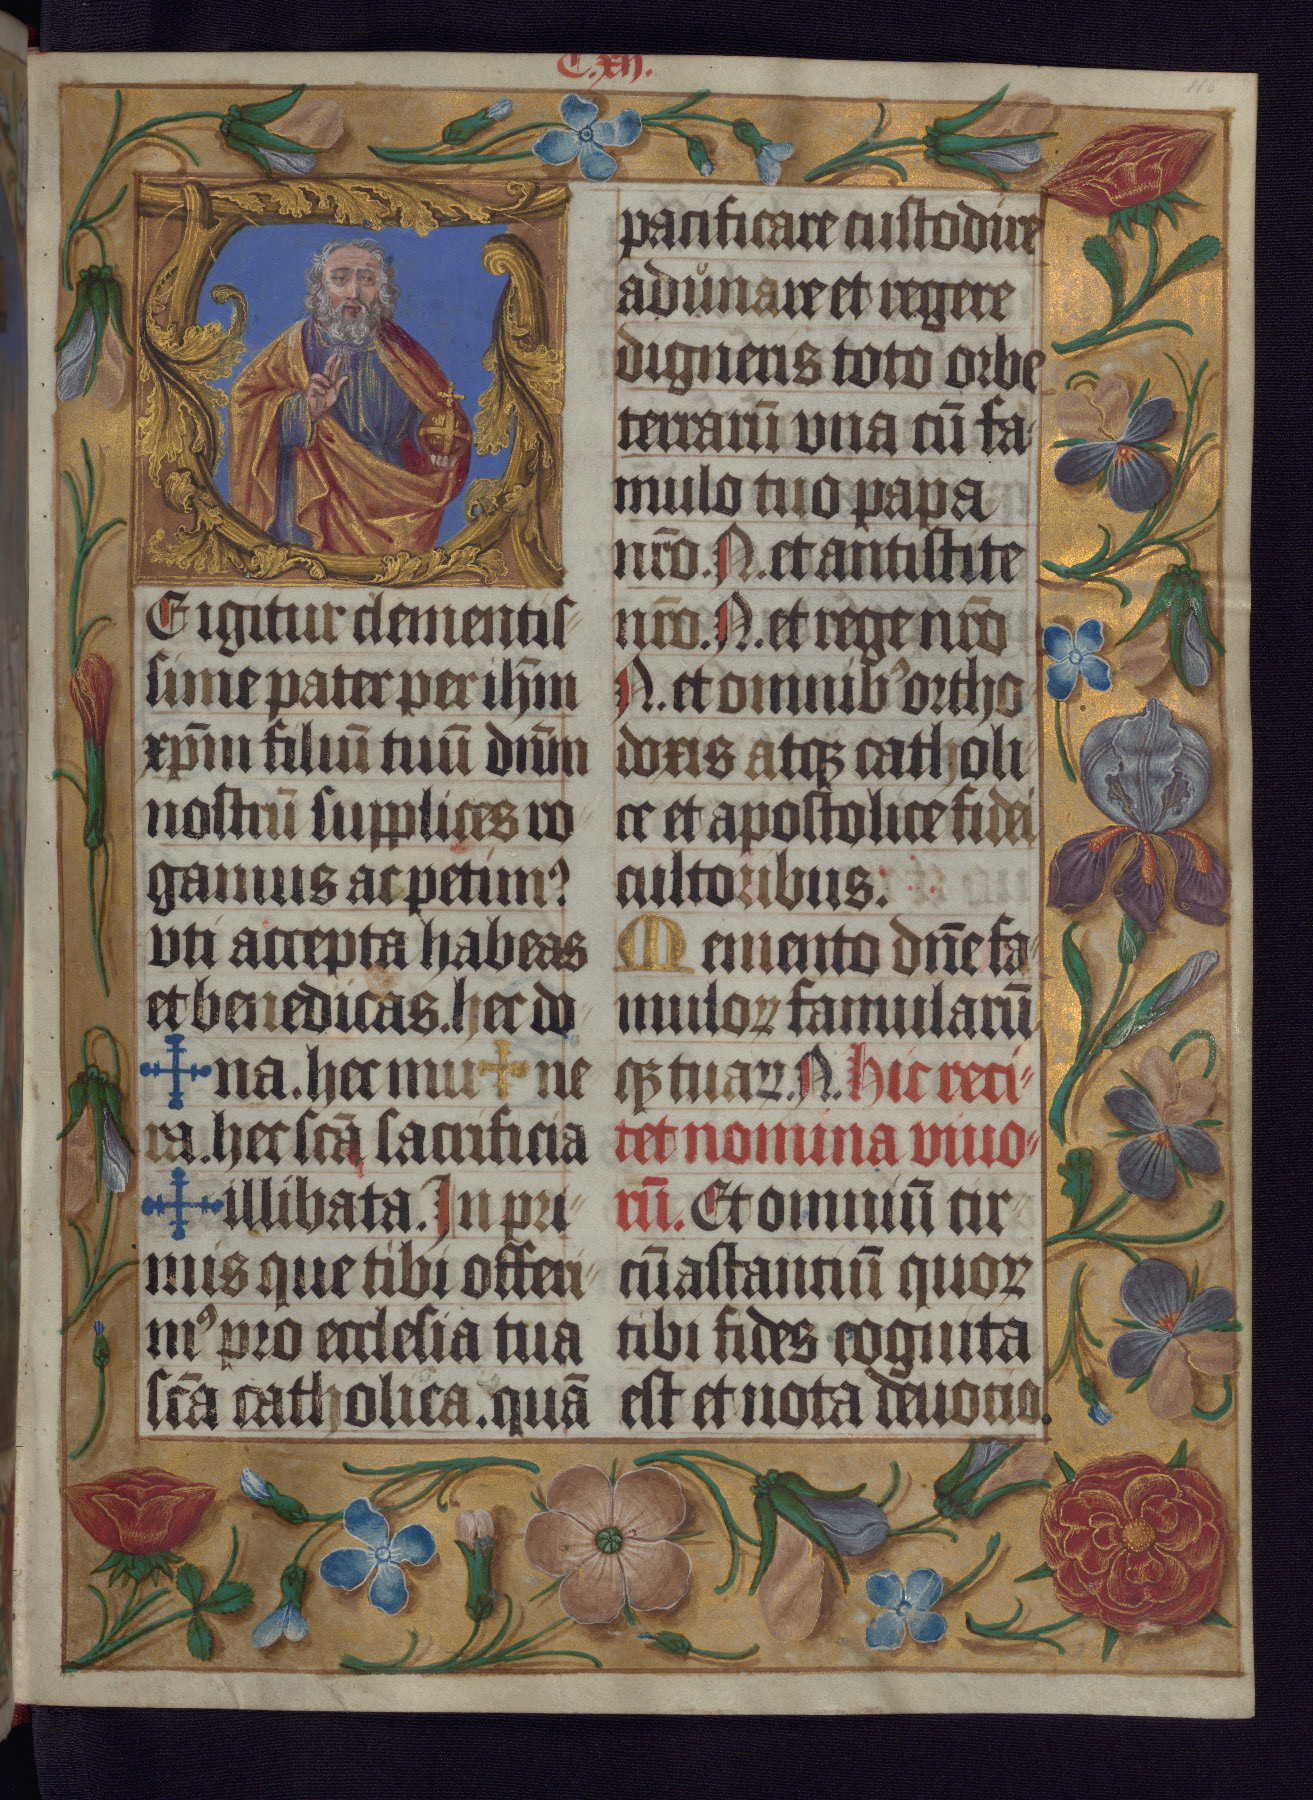 C.xii.
116
TE igitur clementis
sime pater per ihm̄
xp̄m filiū tuū dn̄m
nostrū supplices ro
gamus ac petim⁹
vti accepta habeas
et benedicas. hec do
✠ na. hec mu ✠ ne
ra. hec sc̄a sacrificia
✠ illibata. In pri
mis que tibi offeri
m⁹ pro ecclesia tua
sc̄a catholica. quā
pacificare custodire
adůnare et regere
digneris toto orbe
terrarū vna cū fa
mulo tuo papa
nr̄o. N. et antistite
nr̄o. N. et rege nr̄o
N. et omnib⁹ ortho
doxis atqꝫ catholi
ce et apostolice fidei
cultoribus.
Memento dn̄e fa
muloꝝ famularū
qꝫ tuaꝝ. N. Hic reci
tet nomina viuo
rū. Et omniū cir
cū astantiū quoꝝ
tibi fides cognita
est et nota deuotio.